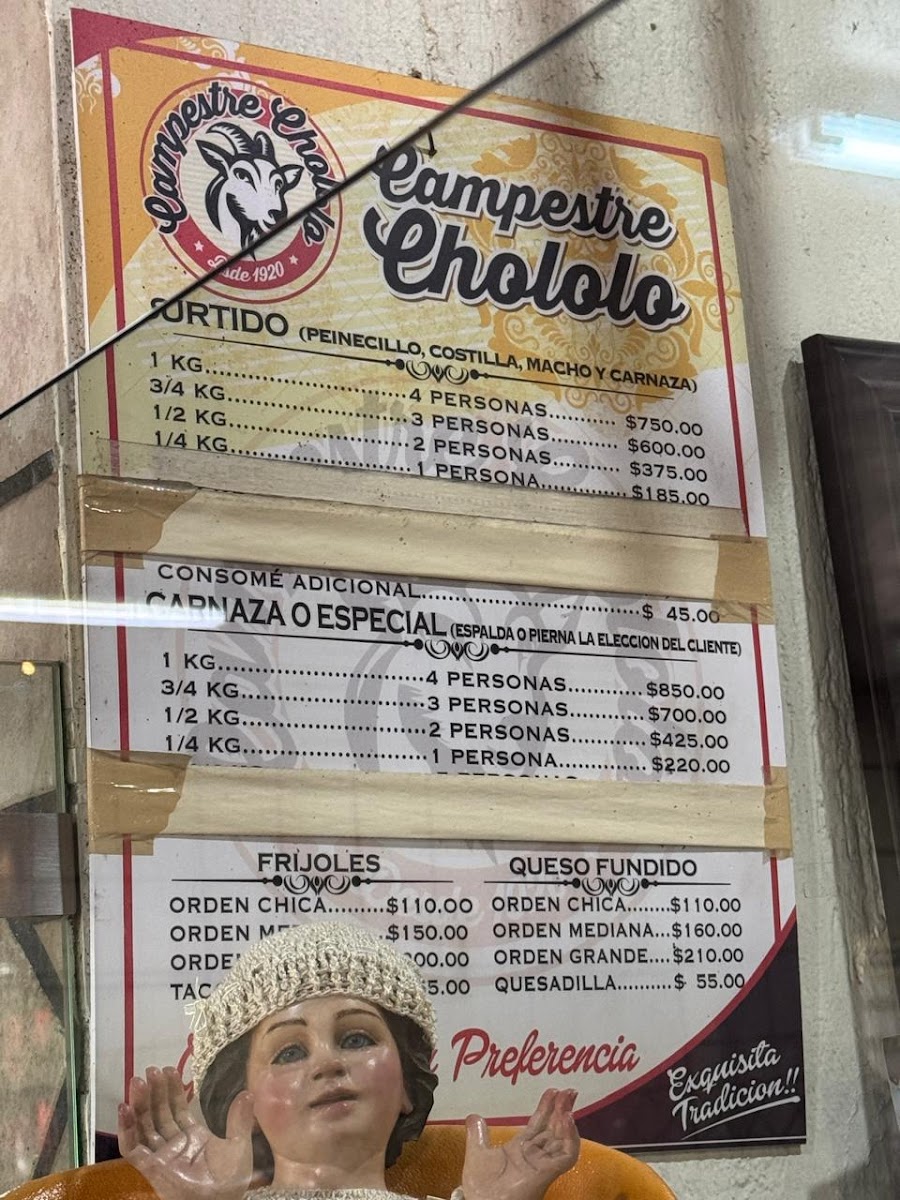 Campestre Chololo
Desde 1920
Campestre
Chololo
SURTIDO (PEINECILLO, COSTILLA, MACHO Y CARNAZA)
1 KG....................4 PERSONAS.......... $750.00
3/4 KG....................3 PERSONAS.......... $600.00
1/2 KG....................2 PERSONAS.......... $375.00
1/4 KG....................1 PERSONA............. $185.00
CONSOMÉ ADICIONAL..............................$ 45.00
CARNAZA O ESPECIAL (ESPALDA O PIERNA LA ELECCION DEL CLIENTE)
1 KG.......................4 PERSONAS...........$850.00
3/4 KG....................3 PERSONAS............$700.00
1/2 KG....................2 PERSONAS............$425.00
1/4 KG....................1 PERSONA..............$220.00
FRIJOLES
ORDEN CHICA.........$110.00
ORDEN $150.00
QUESO FUNDIDO
ORDEN CHICA.......$110.00
ORDEN MEDIANA...$160.00
ORDEN GRANDE....$210.00
QUESADILLA..........$ 55.00
Preferencia
Exquisita
Tradicion!!